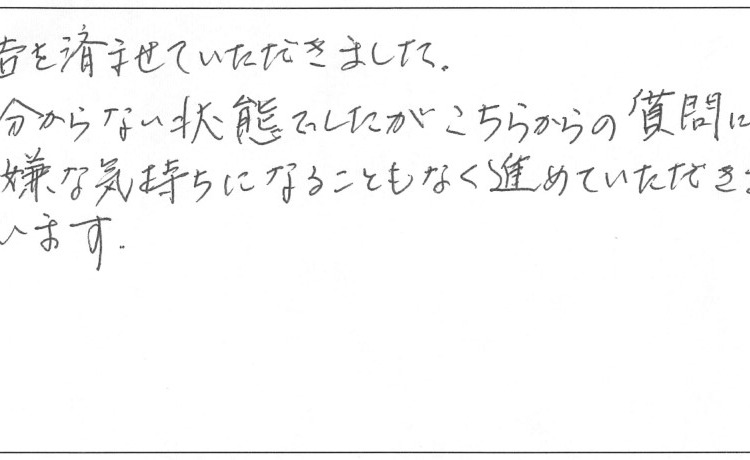 告を済ませていただきました。
分からない状態でしたがこちらからの質問に
嫌な気持ちになることもなく進めていただき
います。